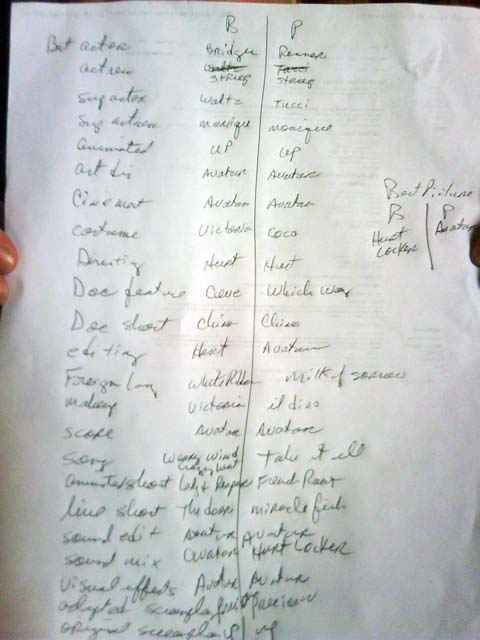 B P
Best actor Bridges Renner
actress Waltz Tucci
Streep Streep
Sup actor Waltz Tucci
Sup actress monique monique
animated UP UP
art dir Avatar Avatar
Best Picture
Cinemat Avatar Avatar
B P
costume Victoria Coco
Hurt Locker Avatar
Directing Hurt Hurt
Doc feature Cove Which way
Doc short China China
editing Hurt Avatar
Foreign lang White Ribbon Milk of sorrow
makeup Victoria il divo
score Avatar Avatar
song Weary Kind Take it all
crazy heart
animated short Lady & Reaper French Roast
live short The door miracle fish
sound edit Avatar Avatar
sound mix Avatar Hurt Locker
visual effects Avatar Avatar
adapted screenplay precious
original screenplay up